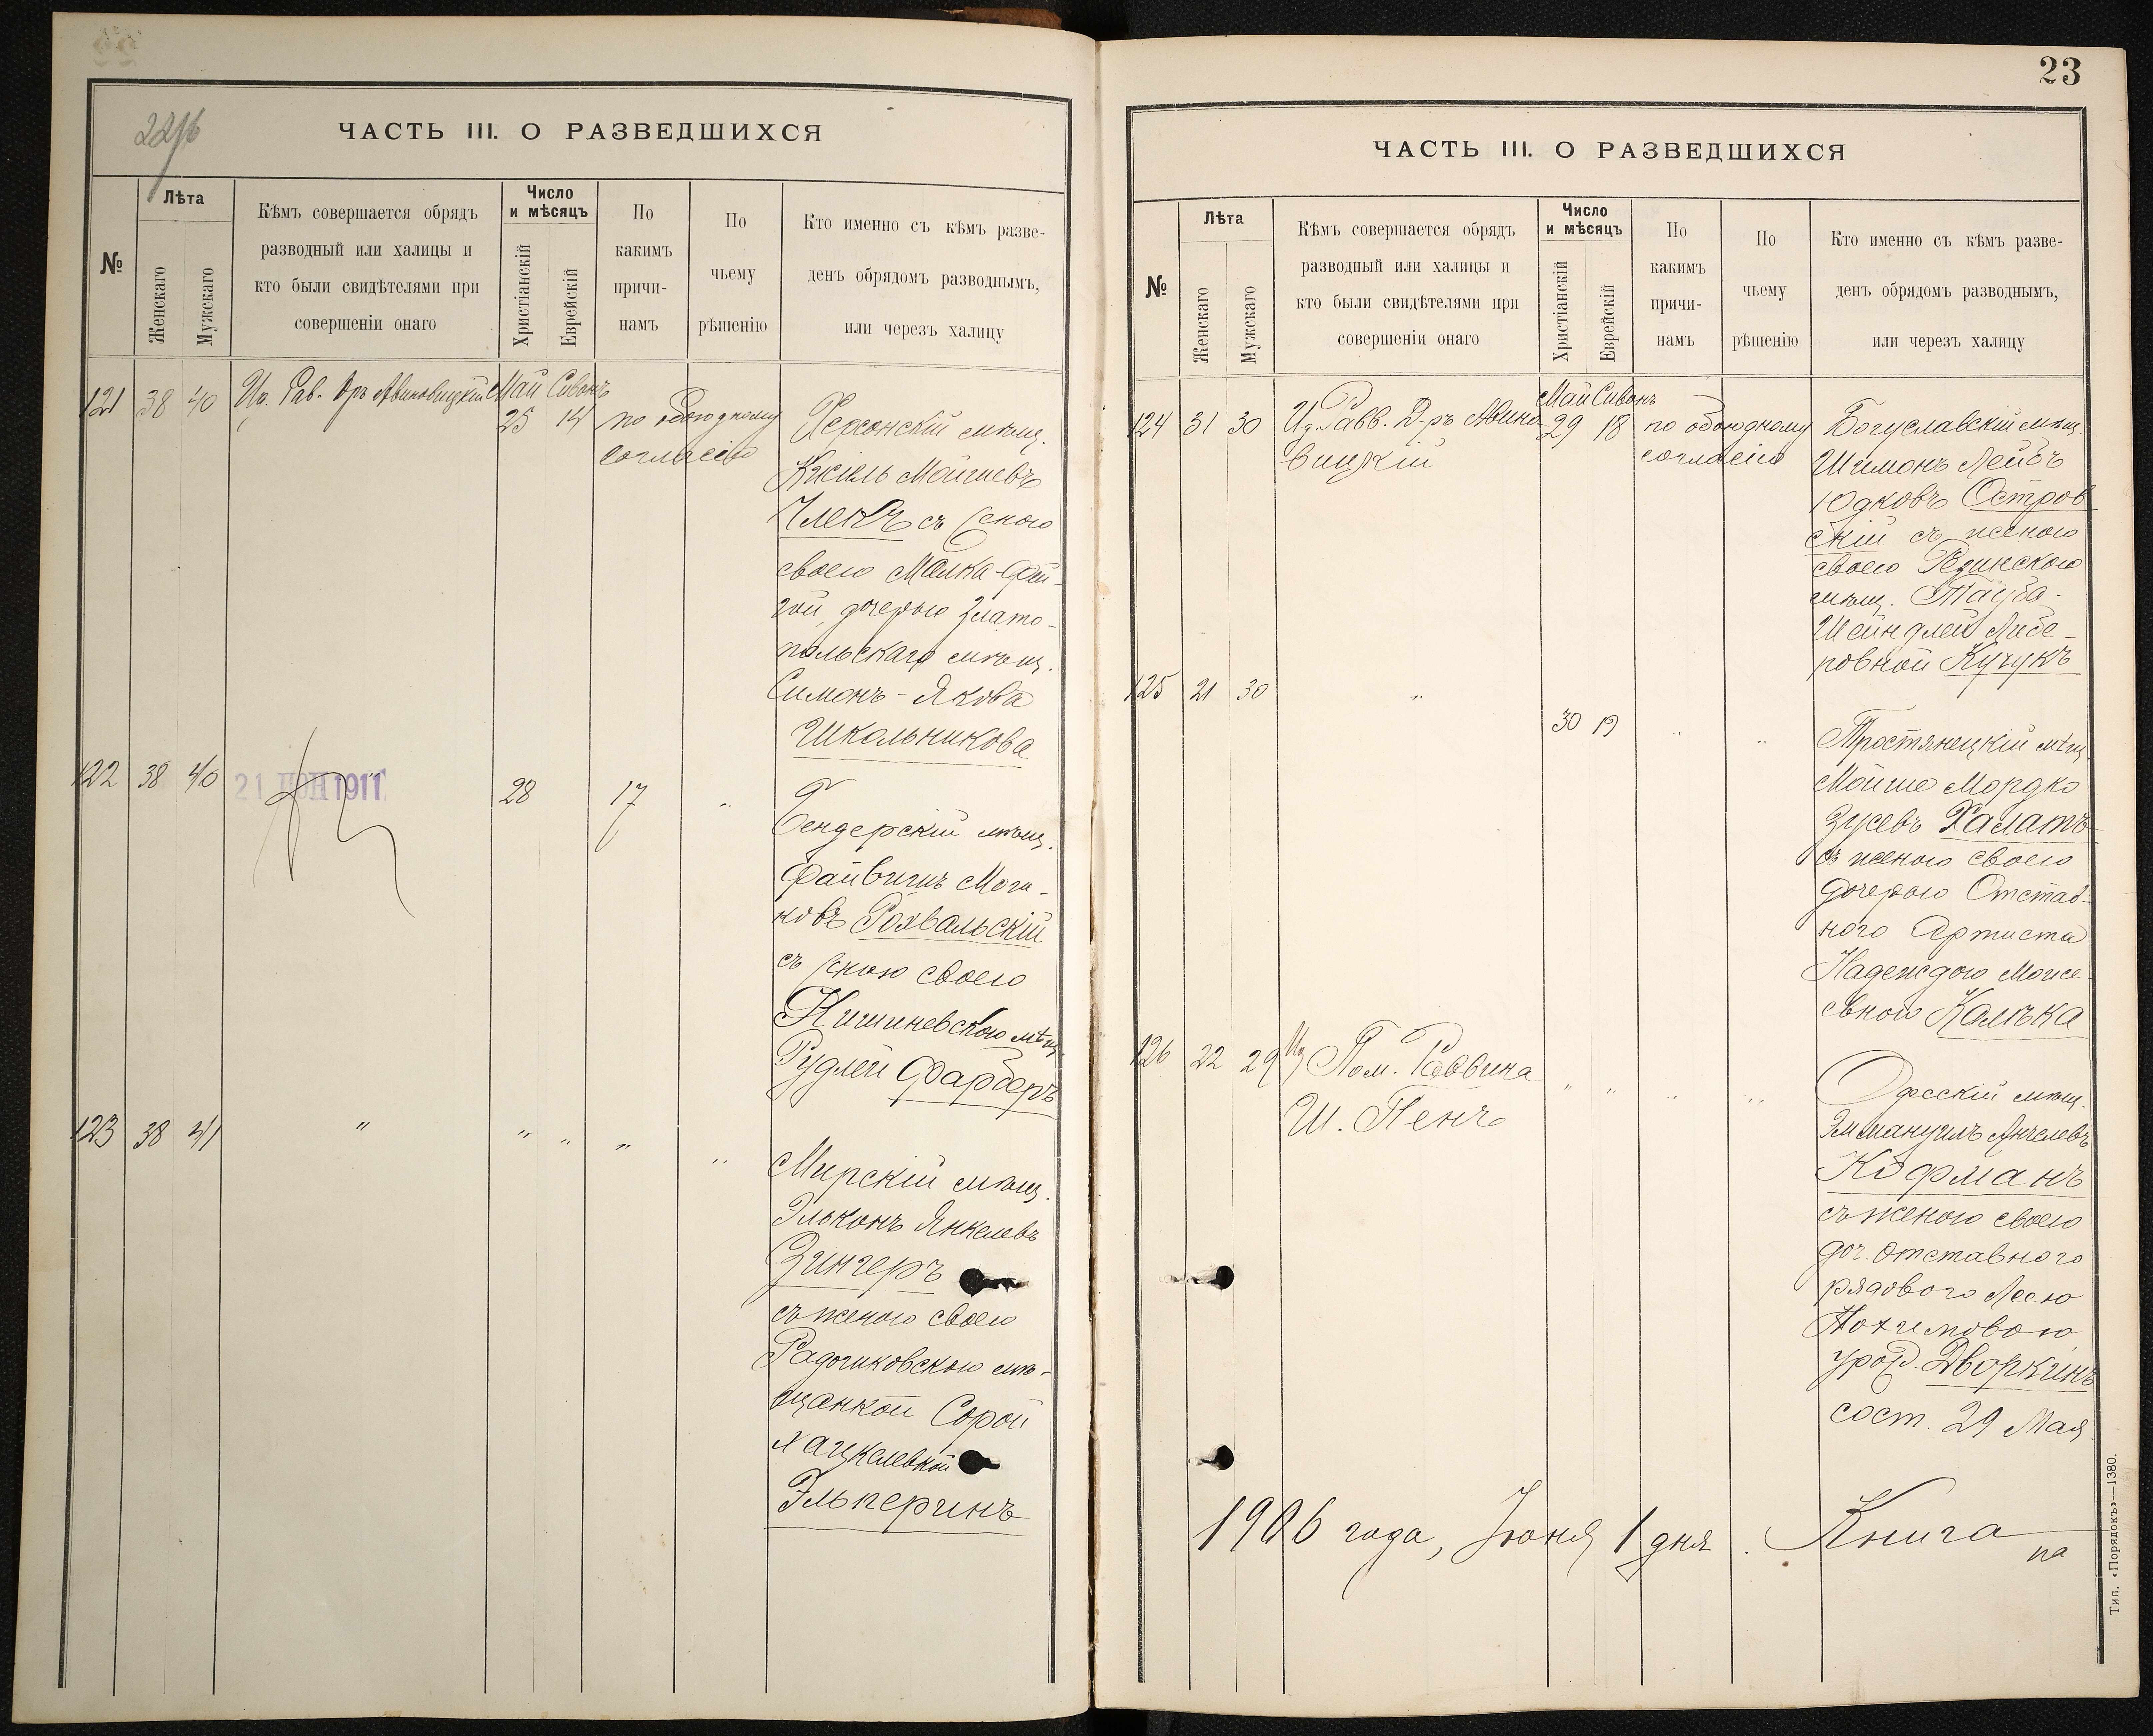 22/б
ЧАСТЬ III. О РАЗВЕДШИХСЯ
№
Лѣта
Женскаго
Мужскаго
Кѣмъ совершается обрядъ
разводный или халицы и
кто были свидѣтелями при
совершеніи онаго
Число
и мѣсяцъ
Христіанскій
Еврейскій
По
какимъ
причи-
намъ
По
чьему
рѣшенію
Кто именно съ кѣмъ разве-
денъ обрядомъ разводнымъ,
или черезъ халицу
121 38 40 Рав. Дръ Авиновицкій Май Сиванъ
25 14 по обоюдному
согласію
Херсонскій мѣщ.
Кисиль Мойшевъ
съ женою
своею Малка-Фей-
гой, дочерью Злато-
польскаго мѣщ.
Симонъ-Якова
Школьникова
122 38 40 21 ІЮН 1911 28 17 "
Бендерскій мѣщ.
Файвишъ Моти-
ковъ Рохвальскій
съ женою своею
Кишиневскою мѣщ.
Рудлей Фарберъ
123 38 41 " " " " "
Мирскій мѣщ.
Эльконъ Янкелевъ
Зингеръ
съ женою своею
Радошковскою мѣ-
щанкой Сорой
Хацкелевной
Эльперинъ
23
ЧАСТЬ III. О РАЗВЕДШИХСЯ
№
Лѣта
Женскаго
Мужскаго
Кѣмъ совершается обрядъ
разводный или халицы и
кто были свидѣтелями при
совершеніи онаго
Число
и мѣсяцъ
Христіанскій
Еврейскій
По
какимъ
причи-
намъ
По
чьему
рѣшенію
Кто именно съ кѣмъ разве-
денъ обрядомъ разводнымъ,
или черезъ халицу
Май Сиванъ
124 31 30 Равв. Д-ръ Авино-
вицкій
29 18 по обоюдному
согласію
Богуславскій мѣщ.
Шимонъ Лейбъ
Юдковъ Остров
скій съ женою
своею
мѣщ. Тауба-
Шейндлей Либе-
ровной Кучукъ
125 21 30 " 30 19 " "
Тростянецкій мѣщ.
Мойше Мордко
Зусевъ Халатъ
съ женою своею
дочерью Отстав-
ного Артиста
Надеждою Моисе-
евною Калька
126 22 29 Пом. Раввина
Ш. Пенъ
" " " "
Одесскій мѣщ.
Эммануилъ Анчелевъ
Кофманъ
съ женою своею
доч. отставного
рядового Лесю
Нохимовою
урод. Дворкинъ
сост. 29 Мая.
1906 года, Іюня 1 дня. Книга
на
Тип. «Порядокъ»—1380.